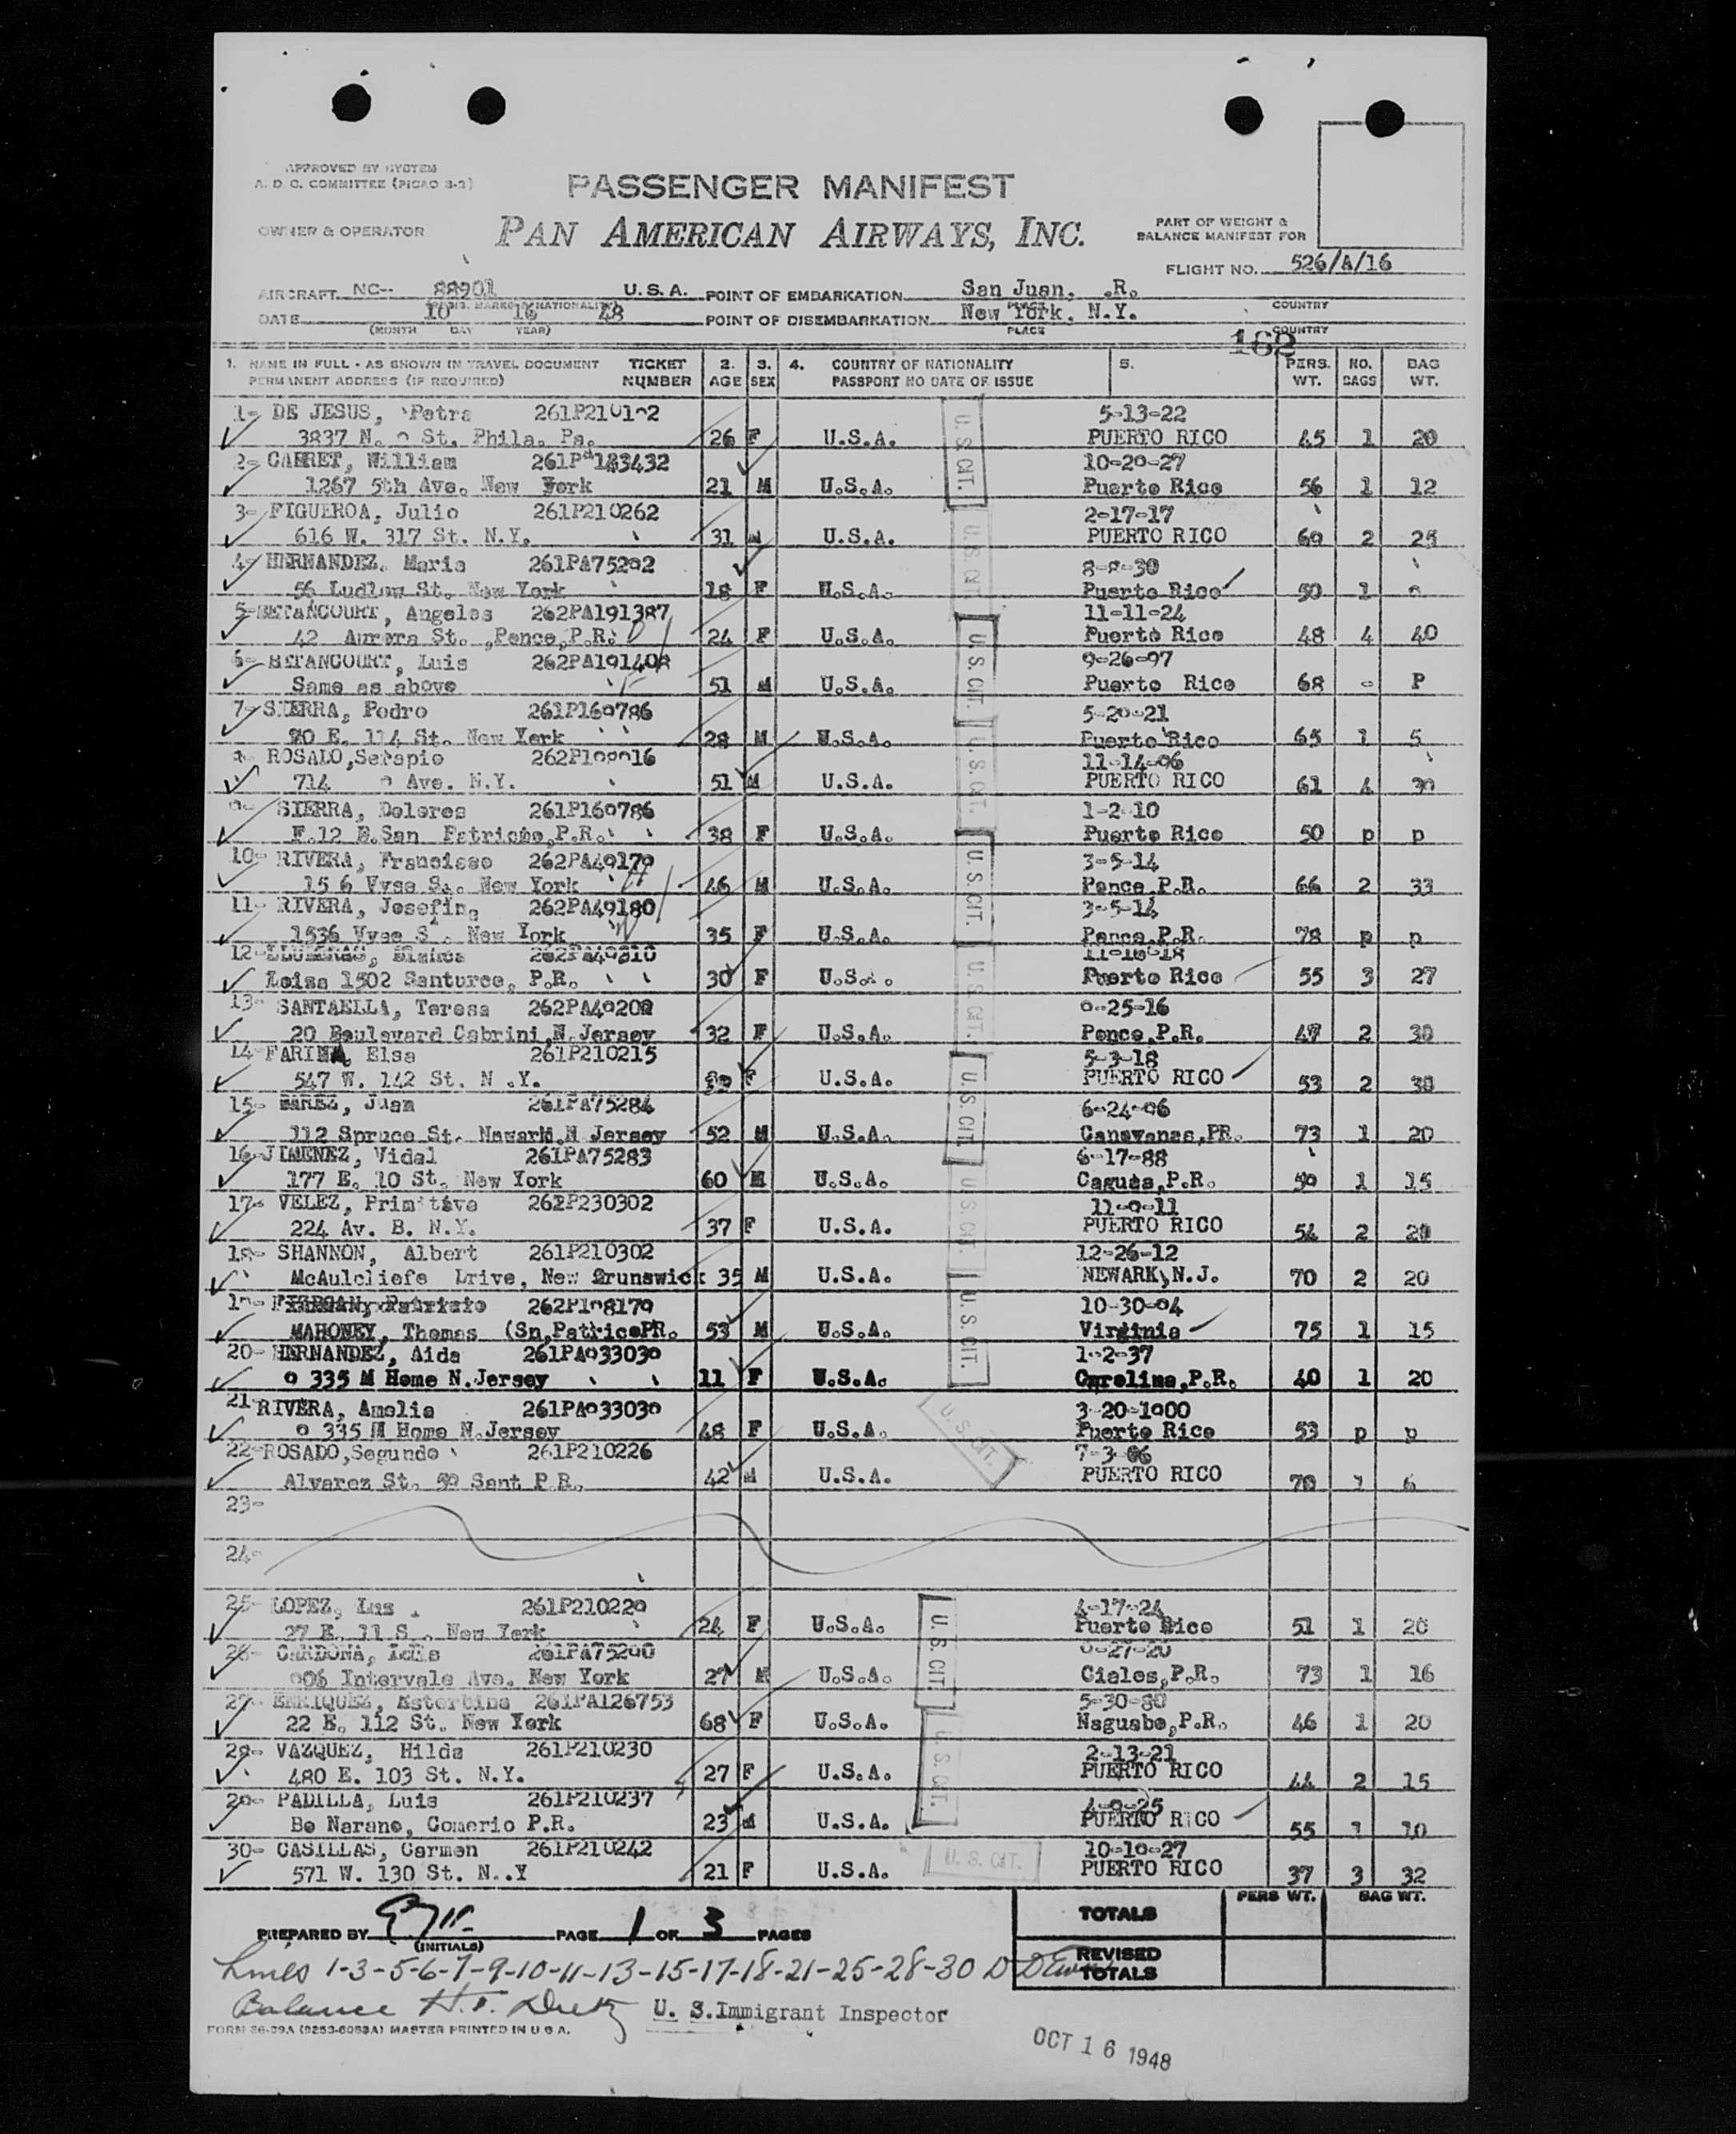 APPROVED BY SYSTEM
A. D. C. COMMITTEE (PICAO 3-2)
PASSENGER MANIFEST
OWNER & OPERATOR
PAN AMERICAN AIRWAYS, INC.
PART OF WEIGHT &
BALANCE MANIFEST FOR
FLIGHT NO. 526/A/16
AIRCRAFT NC-- 88901 U.S.A. POINT OF EMBARKATION San Juan, .R.
REGIS. MARKS NATIONALITY PLACE COUNTRY
DATE 10 16 48 POINT OF DISEMBARKATION New York, N.Y.
(MONTH DAY YEAR) PLACE COUNTRY
162
1. NAME IN FULL - AS SHOWN IN TRAVEL DOCUMENT TICKET 2. 3. 4. COUNTRY OF NATIONALITY 5. PERS. NO. BAG
PERMANENT ADDRESS (IF REQUIRED) NUMBER AGE SEX PASSPORT NO DATE OF ISSUE WT. BAGS WT.
1- DE JESUS, Petra 5-13-22
3837 N. St. Phila. Pa. 26 F U.S.A. PUERTO RICO 45 1 20
2- William 10-20-27
1267 5th Ave. New York 21 M U.S.A. Puerto Rico 56 1 12
3- FIGUEROA, Julio 261P210262 2-17-17
616 W. 317 St. N.Y. 31 M U.S.A. PUERTO RICO 60 2 25
4- HERNANDEZ, Maria 261PA75202 8-8-30
56 Ludlow St. New York 18 F U.S.A. Puerto Rico 50 1
5- BETANCOURT, Angeles 262PA191387 11-11-24
42 Aurora St., Ponce, P.R. 24 F U.S.A. Puerto Rico 48 4 40
6- BETANCOURT, Luis 262PA191408 9-26-97
Same as above 51 M U.S.A. Puerto Rico 68 - P
7- SIERRA, Pedro 261P160786 5-20-21
20 E. 114 St. New York 28 M U.S.A. Puerto Rico 65 1 5
ROSALO, Serapio 11-14-06
714 Ave. N.Y. 51 M U.S.A. PUERTO RICO 61 4 30
9- SIERRA, Dolores 261P160786 1-2-10
F.12 B.San Patricio, P.R. 38 F U.S.A. Puerto Rico 50 p p
10- RIVERA, Francisco 262PA49179 3-5-14
15 6 Vyse S. New York 46 M U.S.A. Ponce, P.R. 66 2 33
11- RIVERA, Josefina 262PA49180 3-5-14
1536 Vyse S. New York 35 F U.S.A. Ponce, P.R. 78 p p
12- Blanca
Loisa 1502 Santurce, P.R. 30 F U.S.A. Puerto Rico 55 3 27
13- SANTAELLA, Teresa -25-16
20 Boulevard Cabrini, N. Jersey 32 F U.S.A. Ponce, P.R. 47 2 30
14- FARINA, Elsa 261P210215 5-3-18
547 W. 142 St. N.Y. F U.S.A. PUERTO RICO 53 2 30
15- Juan 261PA75284 6-24-06
112 Spruce St. Newark, N Jersey 52 M U.S.A. Canovanas, PR. 73 1 20
16- JIMENEZ, Vidal 261PA75283 6-17-88
177 E. 10 St. New York 60 M U.S.A. Caguas, P.R. 50 1 15
17- VELEZ, Primitiva 262P230302 11-9-11
224 Av. B. N.Y. 37 F U.S.A. PUERTO RICO 54 2 20
18- SHANNON, Albert 261P210302 12-26-12
McAulcliefe Drive, New Brunswick 35 M U.S.A. NEWARK, N.J. 70 2 20
19- 262P108179 10-30-04
MAHONEY, Thomas (Sn,PatricePR. 53 M U.S.A. Virginia 75 1 15
20- HERNANDEZ, Aida 261PA033030 1-2-37
335 M Home N.Jersey 11 F U.S.A. Carolina, P.R. 40 1 20
21- RIVERA, Amelia 261PA033030 3-20-1900
335 M Home N.Jersey 48 F U.S.A. Puerto Rico 53 p p
22- ROSADO, Segundo 261P210226 7-3-06
Alvarez St. 59 Sant P.R. 42 M U.S.A. PUERTO RICO 70 1 6
23-
24-
25- LOPEZ, 261P210229 4-17-24
27 E. 11 S. New York 24 F U.S.A. Puerto Rico 51 1 20
26- CARDONA, Luis
906 Intervale Ave. New York 27 M U.S.A. Ciales, P.R. 73 1 16
27- ENRIQUEZ, Esterbina 261PA126753 5-30-80
22 E. 112 St. New York 68 F U.S.A. Naguabo, P.R. 46 1 20
28- VAZQUEZ, Hilda 261P210230 2-13-21
480 E. 103 St. N.Y. 27 F U.S.A. PUERTO RICO 44 2 15
29- PADILLA, Luis 261P210237 4-9-25
Bo Narano, Comerio P.R. 23 M U.S.A. PUERTO RICO 55 1 10
30- CASILLAS, Carmen 261P210242 10-10-27
571 W. 130 St. N..Y 21 F U.S.A. PUERTO RICO 37 3 32
U. S. CIT.
U. S. CIT.
U. S. CIT.
U. S. CIT.
U. S. CIT.
U. S. CIT.
U. S. CIT.
U. S. CIT.
U. S. CIT.
U. S. CIT.
U. S. CIT.
U. S. CIT.
U. S. CIT.
PERS WT. BAG WT.
TOTALS
PREPARED BY (INITIALS) PAGE 1 OF 3 PAGES
REVISED
TOTALS
Lines 1-3-5-6-7-9-10-11-13-15-17-18-21-25-28-30
Balance U. S. Immigrant Inspector
FORM 26-39A (9253-6083A) MASTER PRINTED IN U S A.
OCT 16 1948